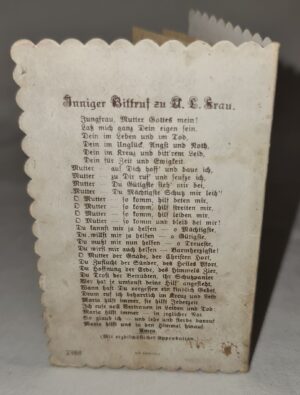 Inniger Bittruf zu U. L. Frau.
Jungfrau, Mutter Gottes mein!
Laß mich ganz Dein eigen sein.
Dein im Leben und im Tod,
Dein im Unglück, Angst und Noth,
Dein im Kreuz und bitt'rem Leid,
Dein für Zeit und Ewigkeit.
Mutter — auf Dich hoff' und baue ich,
Mutter — zu Dir ruf' und seufze ich,
Mutter — Du Gütigste steh' mir bei,
Mutter — Du Mächtigste Schutz mir leih'!
O Mutter — so komm, hilf beten mir,
O Mutter — so komm, hilf streiten mir,
O Mutter — so komm, hilf leiden mir,
O Mutter — so komm und bleib bei mir!
Du kannst mir ja helfen — o Mächtigste,
Du willst mir ja helfen — o Gütigste,
Du mußt mir nun helfen — o Treueste,
Du wirst mir auch helfen — Barmherzigste!
O Mutter der Gnade, der Christen Hort,
Du Zuflucht der Sünder, des Heiles Pfort',
Du Hoffnung der Erde, des Himmels Zier,
Du Trost der Betrübten, ihr Schutzpanier.
Wer hat je umsonst Deine Hilf' angefleht,
Wann hast Du vergessen ein kindlich Gebet,
Drum ruf ich beharrlich im Kreuz und Leid
Maria hilft immer, sie hilft jederzeit.
Ich rufe voll Vertrauen im Leiden und Tod:
Maria hilft immer — in jeglicher Not
So glaub' ich — und lebe und sterbe darauf
Maria hilft uns in den Himmel hinauf.
Amen.
(Mit erzbischöflicher Approbation.)